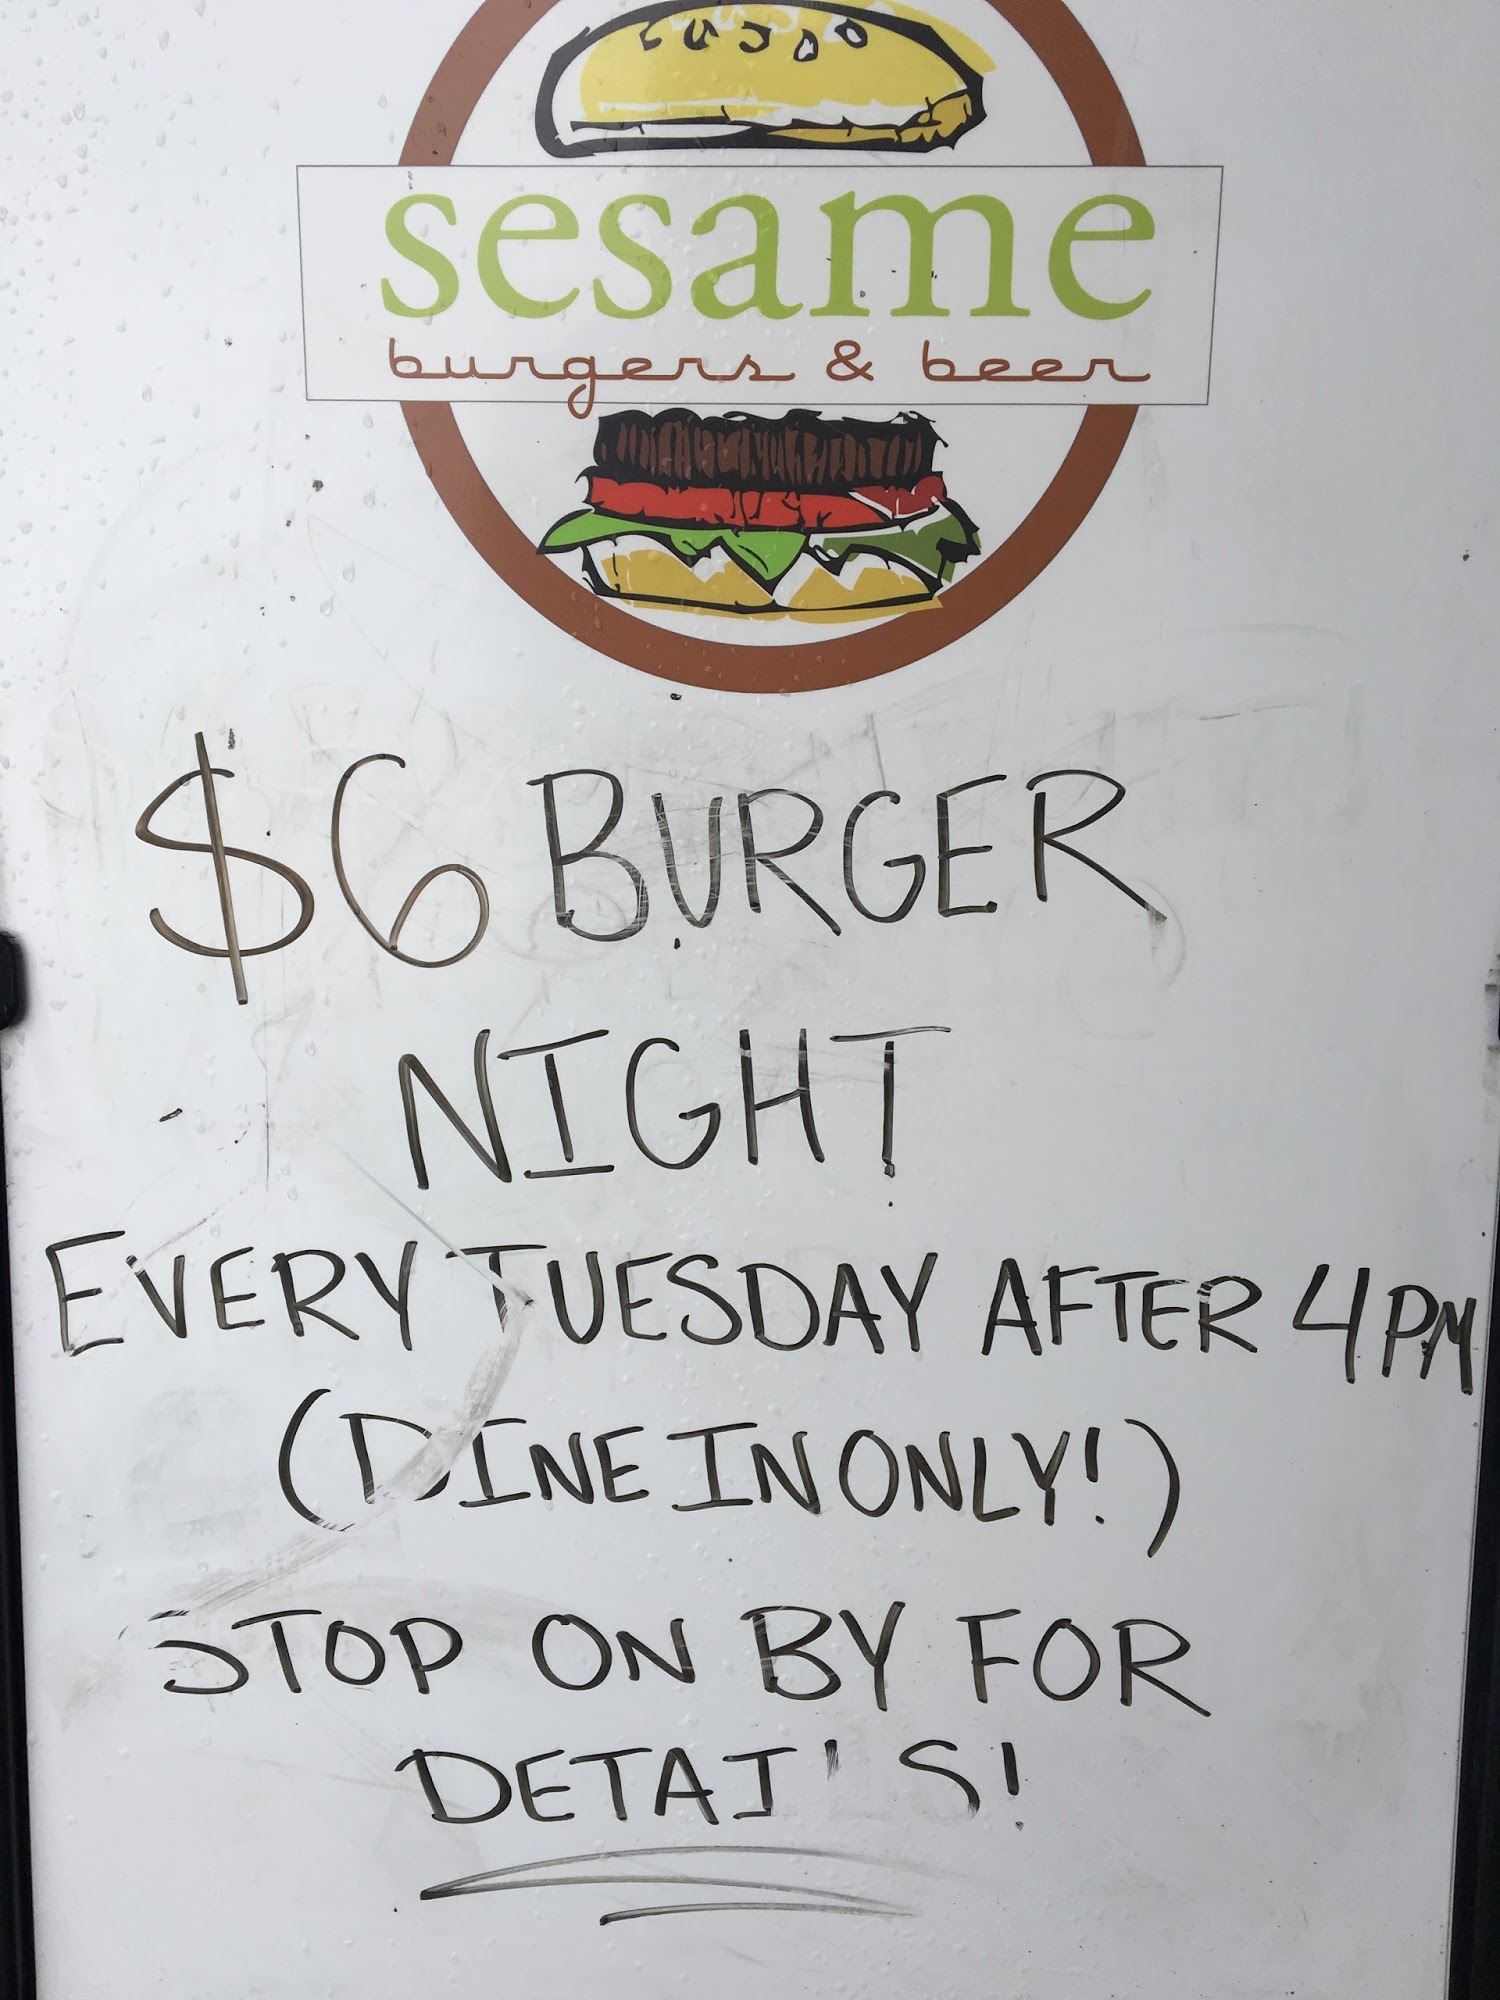 sesame
burgers & beer
$6 BURGER
NIGHT
EVERY TUESDAY AFTER 4PM
(DINE IN ONLY!)
STOP ON BY FOR
DETAILS!